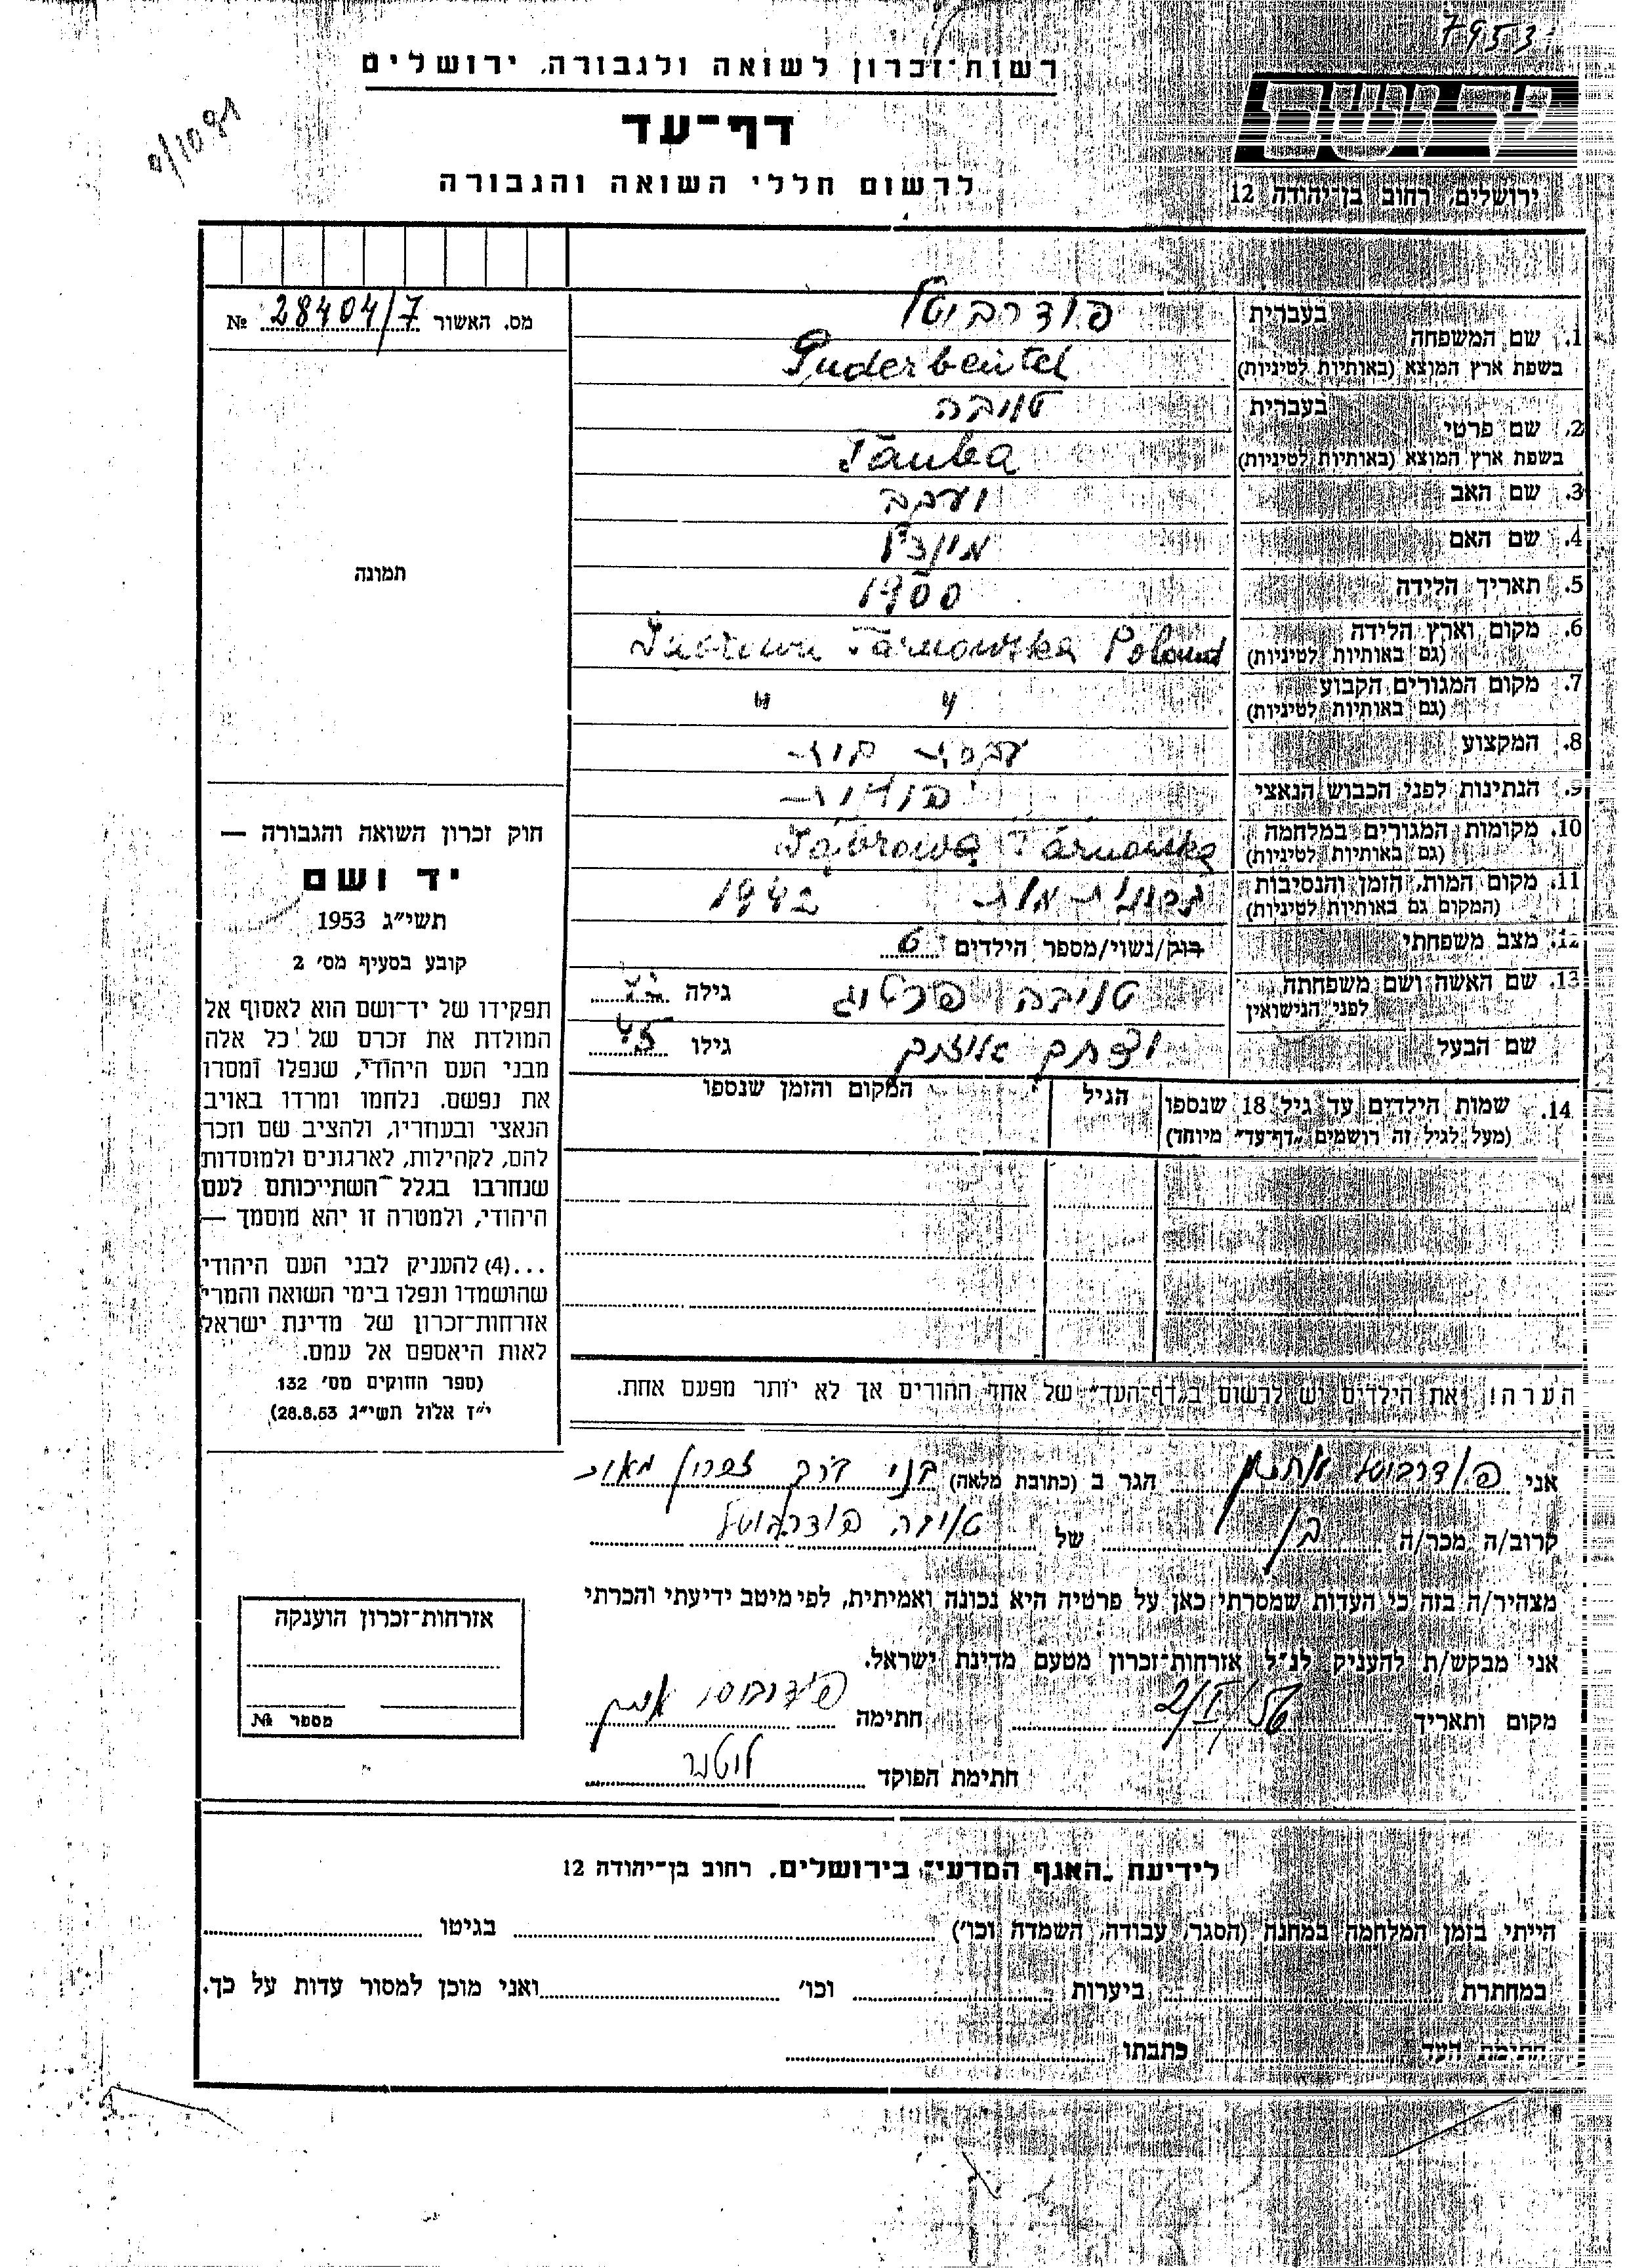 7953
רשות־זכרון לשואה ולגבורה, ירושלים
דף־עד
לרשום חללי השואה והגבורה
יד ושם
ירושלים, רחוב בן־יהודה 12
מס. האשור 28404/7 №
1. שם המשפחה
בעברית פודרבויטל
בשפת ארץ המוצא (באותיות לטיניות) Puderbeutel
2. שם פרטי
בעברית טויבה
בשפת ארץ המוצא (באותיות לטיניות) Tauba
3. שם האב יעקב
4. שם האם
5. תאריך הלידה 1900
6. מקום וארץ הלידה
(גם באותיות לטיניות) Tarnowska Poland
7. מקום המגורים הקבוע " "
(גם באותיות לטיניות)
8. המקצוע עקרת בית
9. הנתינות לפני הכבוש הנאצי
10. מקומות המגורים במלחמה
(גם באותיות לטיניות) Dąbrowa Tarnowska
11. מקום המות, הזמן והנסיבות 1942
(המקום גם באותיות לטיניות)
12. מצב משפחתי רוק/נשוי/מספר הילדים 6
13. שם האשה ושם משפחתה
לפני הנישואין טויבה גילה
שם הבעל יצחק גילו 45
14. שמות הילדים עד גיל 18 שנספו
(מעל לגיל זה רושמים „דף־עד" מיוחד)
הגיל
המקום והזמן שנספו
הערה! את הילדים יש לרשום ב„דף־העד" של אחד ההורים אך לא יותר מפעם אחת.
תמונה
חוק זכרון השואה והגבורה —
יד ושם
תשי״ג 1953
קובע בסעיף מס׳ 2
תפקידו של יד־ושם הוא לאסוף אל
המולדת את זכרם של כל אלה
מבני העם היהודי, שנפלו ומסרו
את נפשם, נלחמו ומרדו באויב
הנאצי ובעוזריו, ולהציב שם וזכר
להם, לקהילות, לארגונים ולמוסדות
שנחרבו בגלל השתייכותם לעם
היהודי, ולמטרה זו יהא מוסמך —
...(4) להעניק לבני העם היהודי
שהושמדו ונפלו בימי השואה והמרי
אזרחות־זכרון של מדינת ישראל
לאות היאספם אל עמם.
(ספר החוקים מס׳ 132
י״ז אלול תשי״ג 28.8.53)
אני פודרבויטל הגר ב (כתובת מלאה) בני דרך זכרון מאיר
קרוב/ה מכר/ה בן של טויבה פודרבויטל
מצהיר/ה בזה כי העדות שמסרתי כאן על פרטיה היא נכונה ואמיתית, לפי מיטב ידיעתי והכרתי
אני מבקש/ת להעניק לנ״ל אזרחות־זכרון מטעם מדינת ישראל.
מקום ותאריך 2/I/56 חתימה
חתימת הפוקד
אזרחות־זכרון הוענקה
מספר №
לידיעת „האגף המדעי" בירושלים, רחוב בן־יהודה 12
הייתי בזמן המלחמה במחנה (הסגר, עבודה, השמדה וכו׳) בגיטו
במחתרת ביערות וכו׳ ואני מוכן למסור עדות על כך.
חתימת העד כתבתו